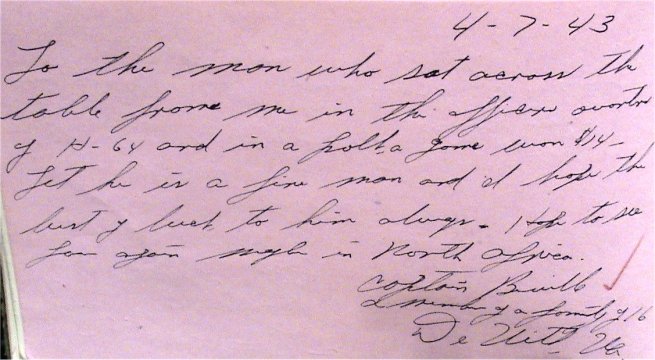 4-7-43
To the man who sat across the
table from me in the officers quarters
of H-64 and in a polka game won $14-
Yet he is a fine man and I hope the
best of luck to him always. I hope to see
you again maybe in North Africa.
Captain
a member of a family of 16
De Witt, Va.